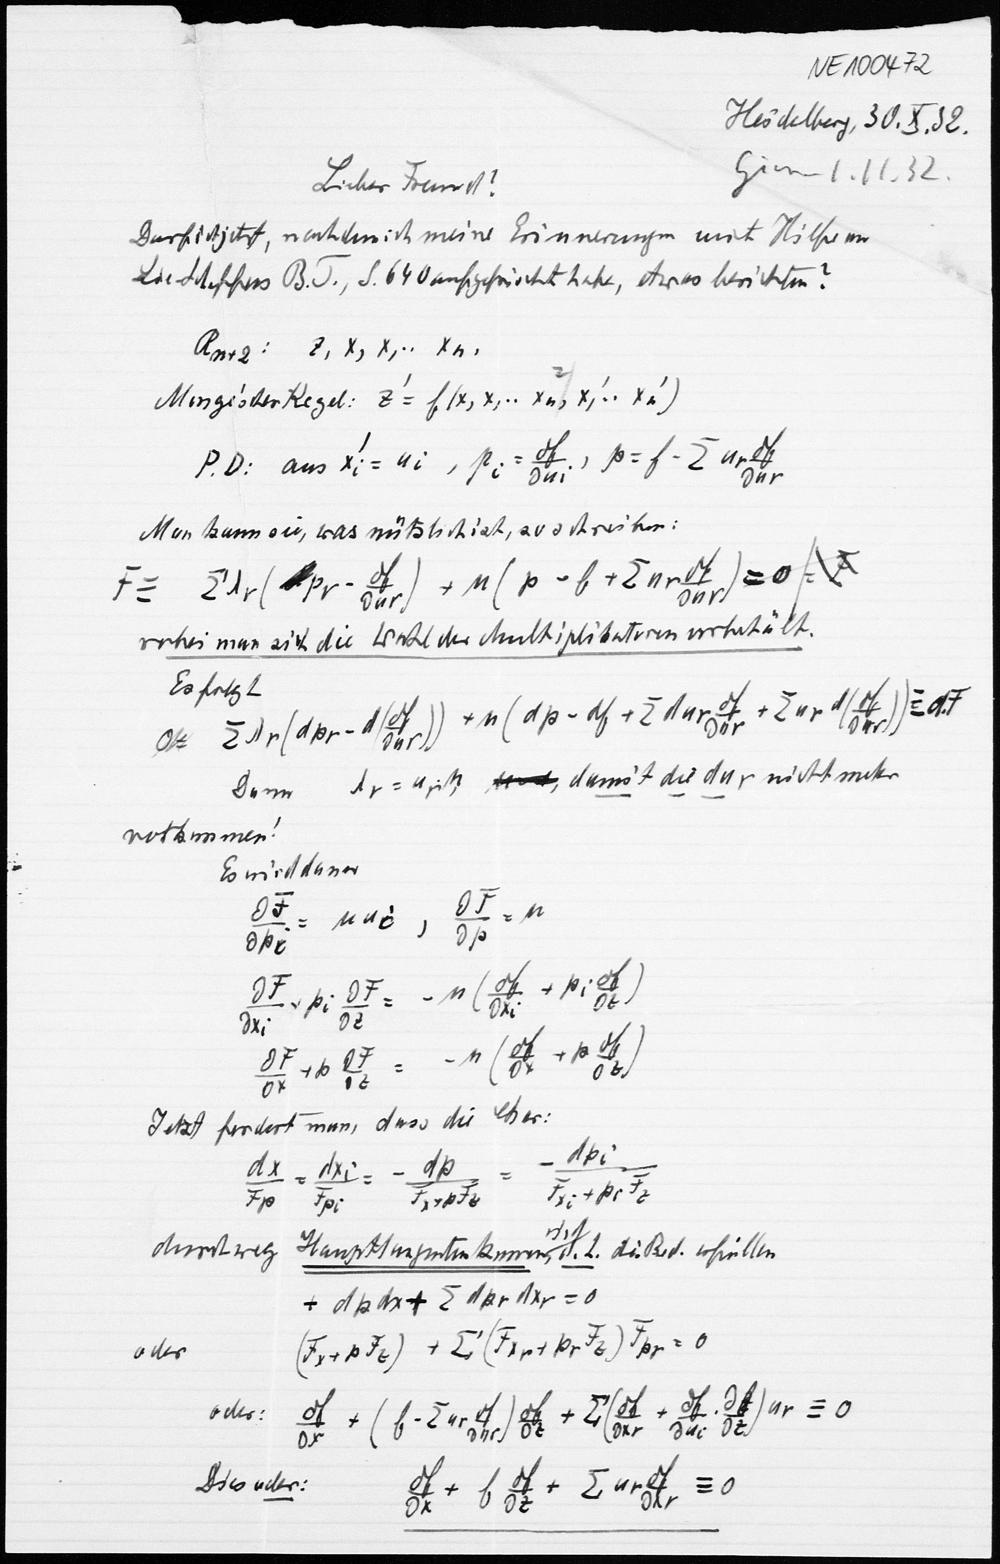 NE100472
Heidelberg, 30.X.32.
1.11.32.
Lieber Freund!
Darf ich jetzt, nachdem ich meine Erinnerungen mit Hilfe von
Lie-Scheffers B.T., S. 640 aufgefrischt habe, etwas berichten?
R_{n+2}: z, x, x_1 .. x_n.
Monge'scher Kegel: z' = f(x, x_1 .. x_n, z, x_1' .. x_n')
P.D: aus x_i' = u_i , p_i = ∂f/∂u_i , p = f - Σ u_r ∂f/∂u_r
Man kann sie, was nützlich ist, so schreiben:
F ≡ Σ λ_r (p_r - ∂f/∂u_r) + μ (p - f + Σ u_r ∂f/∂u_r) = 0
wobei man sich die Wahl der Multiplikatoren vorbehält.
Es folgt
0 = Σ λ_r (dp_r - d(∂f/∂u_r)) + μ (dp - df + Σ du_r ∂f/∂u_r + Σ u_r d(∂f/∂u_r)) ≡ dF
Dann λ_r = u_r μ, damit die du_r nicht mehr
vorkommen!
Es wird dann
∂F/∂p_i = μ u_i , ∂F/∂p = μ
∂F/∂x_i + p_i ∂F/∂z = - μ (∂f/∂x_i + p_i ∂f/∂z)
∂F/∂x + p ∂F/∂z = - μ (∂f/∂x + p ∂f/∂z)
Jetzt fordert man, dass die Char:
dx/F_p = dx_i/F_{p_i} = - dp/(F_x + p F_z) = - dp_i/(F_{x_i} + p_i F_z)
durchweg Haupttangentenkurven sind, d. h. die Bed. erfüllen
+ dp dx + Σ dp_r dx_r = 0
oder (F_x + p F_z) + Σ (F_{x_r} + p_r F_z) F_{p_r} = 0
oder: ∂f/∂x + (f - Σ u_r ∂f/∂u_r) ∂f/∂z + Σ (∂f/∂x_r + ∂f/∂u_i · ∂f/∂z) u_r ≡ 0
Dies oder: ∂f/∂x + f ∂f/∂z + Σ u_r ∂f/∂x_r ≡ 0